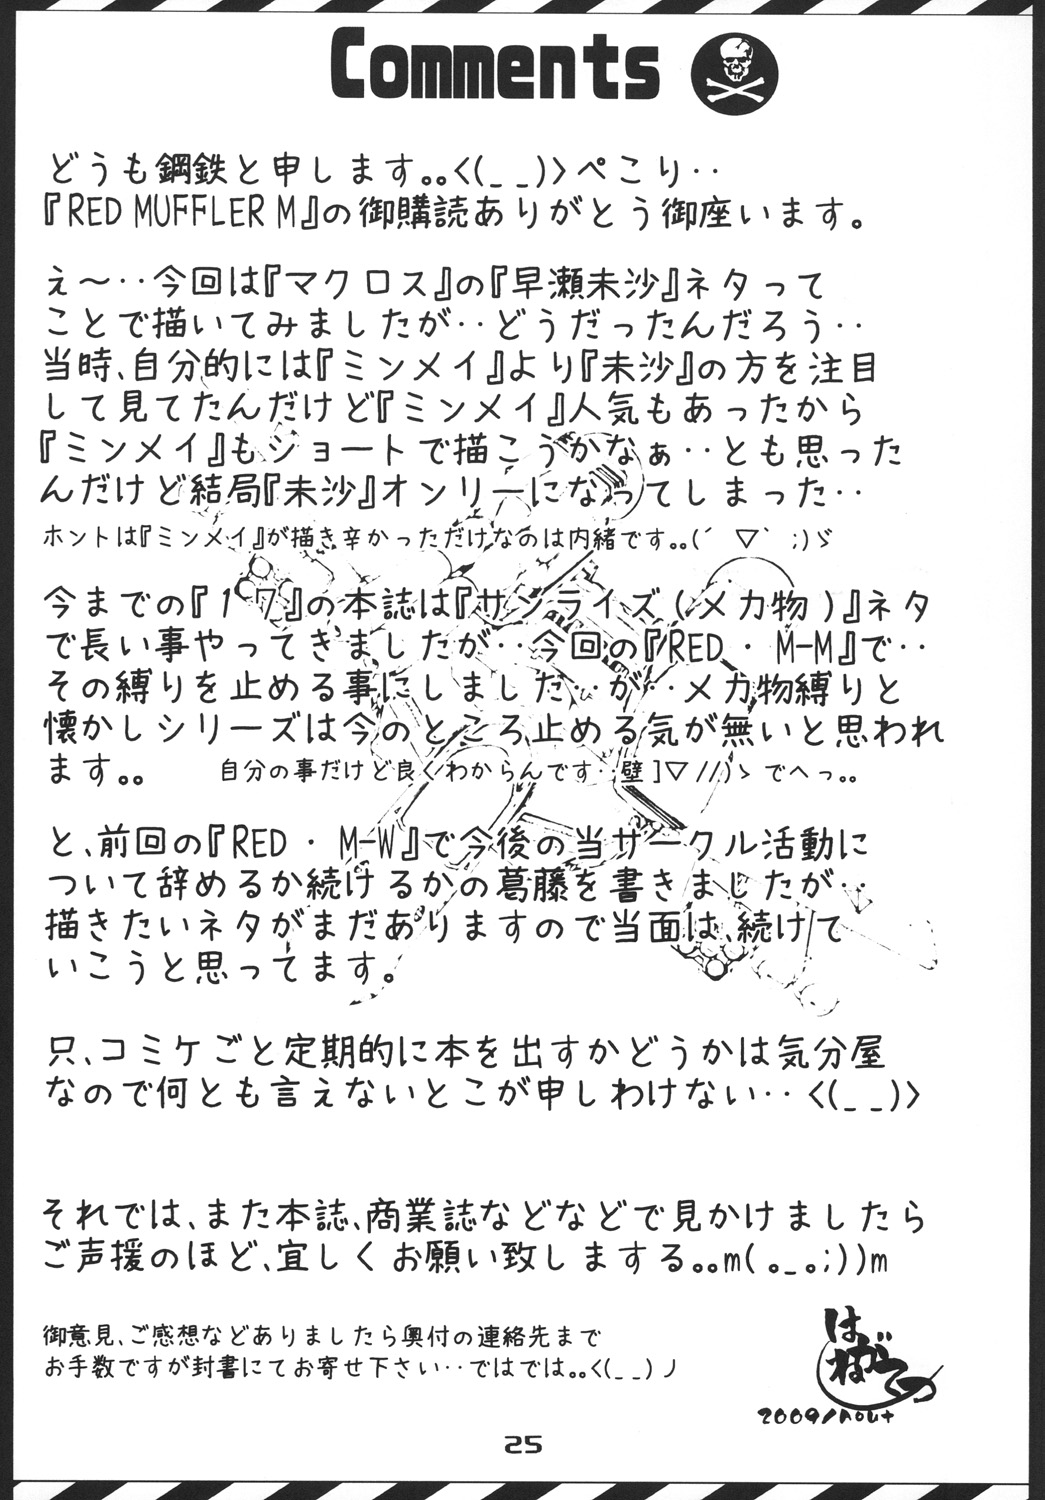 Comments
どうも鋼鉄と申します｡｡<(_ _)>ぺこり‥
『RED MUFFLER M』の御購読ありがとう御座います。
え〜‥今回は『マクロス』の『早瀬未沙』ネタって
ことで描いてみましたが‥どうだったんだろう‥
当時､自分的には『ミンメイ』より『未沙』の方を注目
して見てたんだけど『ミンメイ』人気もあったから
『ミンメイ』もショートで描こうかなぁ‥とも思った
んだけど結局『未沙』オンリーになってしまった‥
ホントは『ミンメイ』が描き辛かっただけなのは内緒です｡｡(´ ▽｀ ;)ゞ
今までの『17』の本誌は『サンライズ(メカ物)』ネタ
で長い事やってきましたが‥今回の『RED・M-M』で‥
その縛りを止める事にしました‥が‥メカ物縛りと
懐かしシリーズは今のところ止める気が無いと思われ
ます｡｡ 自分の事だけど良くわからんです‥壁]▽//)ゝでへっ｡｡
と､前回の『RED・M-W』で今後の当サークル活動に
ついて辞めるか続けるかの葛藤を書きましたが‥
描きたいネタがまだありますので当面は､続けて
いこうと思ってます。
只､コミケごと定期的に本を出すかどうかは気分屋
なので何とも言えないとこが申しわけない‥<(_ _)>
それでは､また本誌､商業誌などなどで見かけましたら
ご声援のほど､宜しくお願い致しまする｡｡m( ｡_｡;))m
御意見､ご感想などありましたら奥付の連絡先まで
お手数ですが封書にてお寄せ下さい‥ではでは｡｡<(_ _)ノ
25